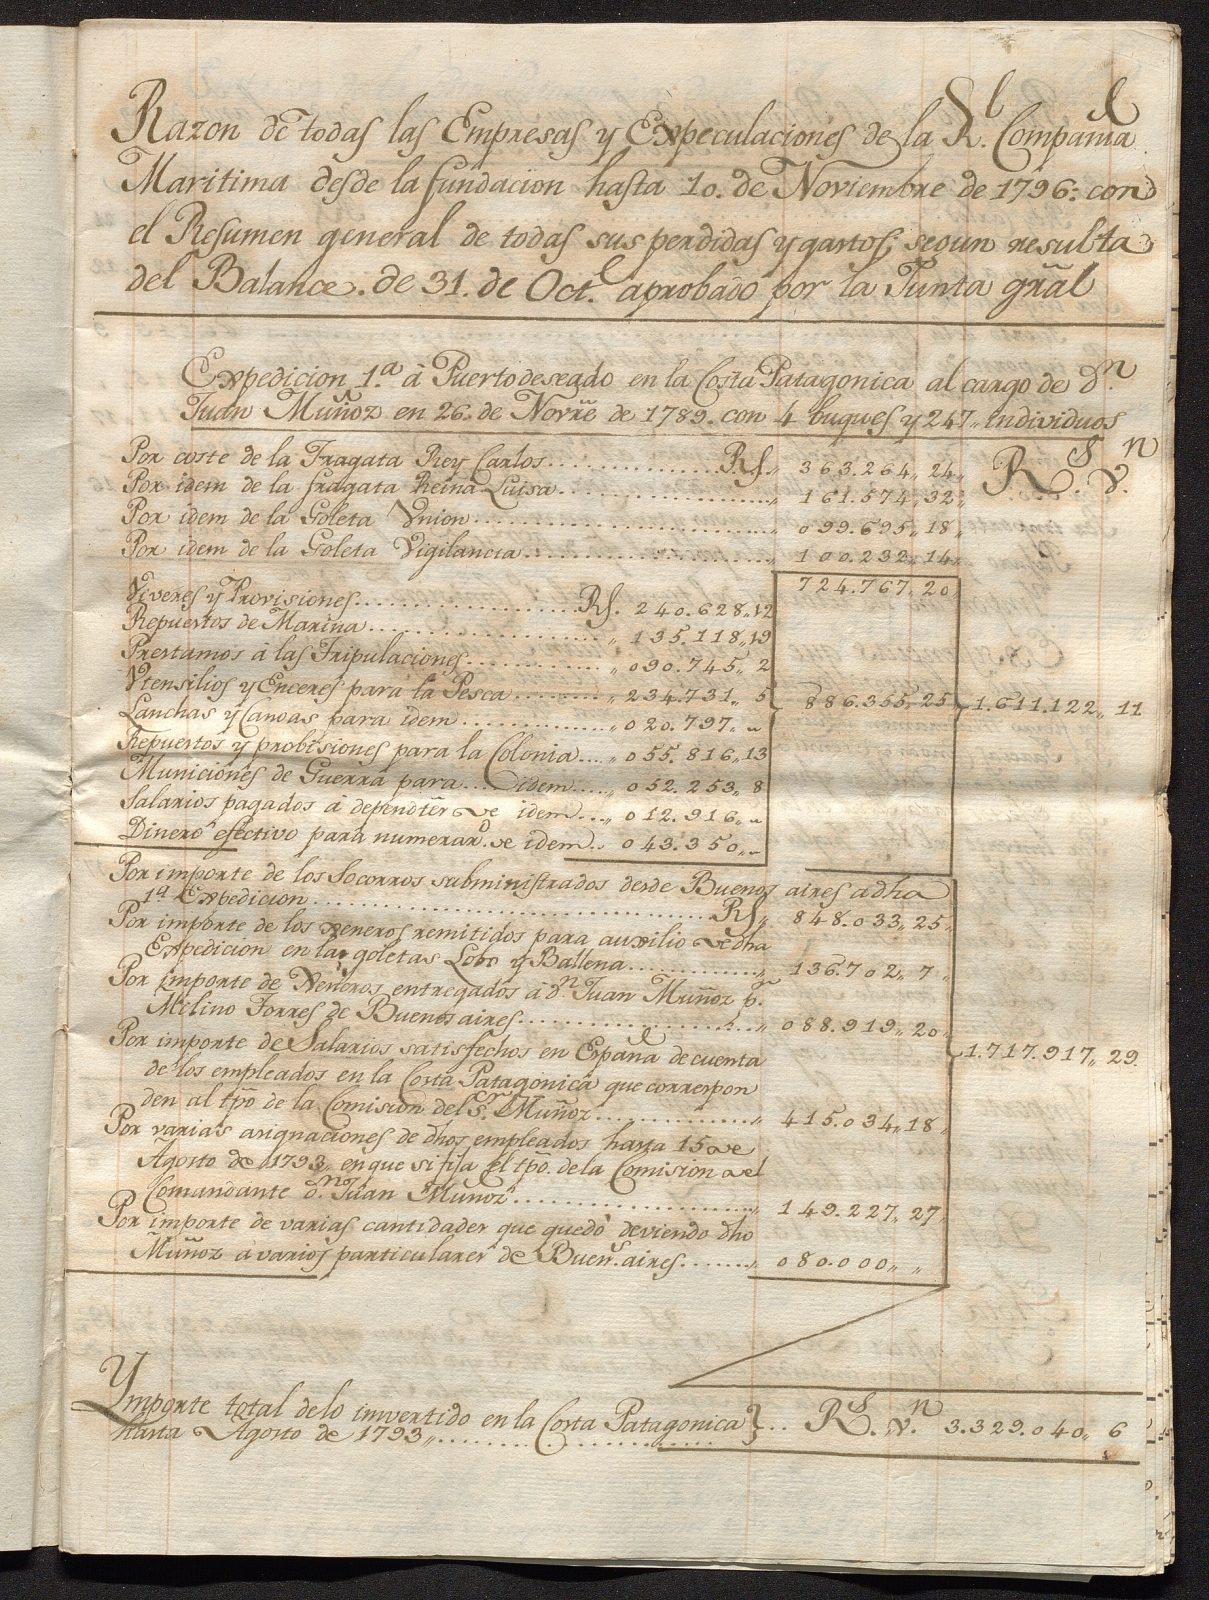 Razon de todas las Empresas y Expeculaciones de la Rl. Compañia
Maritima desde la fundacion hasta 10. de Noviembre de 1796: con
el Resumen general de todas sus perdidas y gastos, segun resulta
del Balance. de 31. de Oct.e aprobado por la Junta gral
Expedicion 1.a à Puerto deseado en la Costa Patagonica al cargo de dn.
Juan Muñoz en 26. de Novre de 1789. con 4 buques y 247,, individuos
Por coste de la Fragata Rey Carlos............Rs.,, 363.264,, 24,, Rs. vn.
Por idem de la fragata Reina Luisa............,, 161.574,, 32,,
Por idem de la Goleta Vnion............,, 099.695,, 18,,
Por idem de la Goleta Vigilancia............,, 100.232,, 14,,
724.767,, 20,,
Viveres y Provisiones............Rs. 240.628,, 12
Repuestos de Marina............,, 135.118,, 19
Prestamos à las Tripulaciones............,, 090.745,, 2
Vtensilios y Enceres para la Pesca............,, 234.731,, 5 } 886.355,, 25 } 1.611.122,, 11
Lanchas y Canoas para idem............,, 020.797,, ,,
Repuestos y probisiones para la Colonia....,, 055.816,, 13
Municiones de Guerra para....idem....,, 052.253,, 8
Salarios pagados à dependtes de idem....,, 012.916,, ,,
Dinero efectivo para numerar.o de idem.. 043.350,, ,,
Por importe de los Socorros subministrados desde Buenos aires a dha
1a Expedicion............Rs,, 848.033,, 25,,
Por importe de los xeneros remitidos para auxilio de dha
Expedicion en las goletas Lobo y Ballena............,, 136.702,, 7,,
Por importe de Xeneros entregados à dn. Juan Muñoz pr.
Melino Torres de Buenos aires............,, 088.919,, 20,,
Por importe de Salarios satisfechos en España de cuenta } 1.717.917,, 29.
de los empleados en la Costa Patagonica que correspon
den al tpo. de la Comision del Sr. Muñoz............,, 415.034,, 18,,
Por varias asignaciones de dhos empleados hasta 15 de
Agosto de 1793,, en que si fija el tpo. de la Comision del
Comandante dn. Juan Muñoz............,, 149.227,, 27,,
Por importe de varias cantidades que quedò deviendo dho
Muñoz à varios particulares de Buens. aires........,, 080.000,, ,,
Ymporte total delo invertido en la Costa Patagonica } ... Rs. vn. 3.329.040,, 6
hasta Agosto de 1793,,............